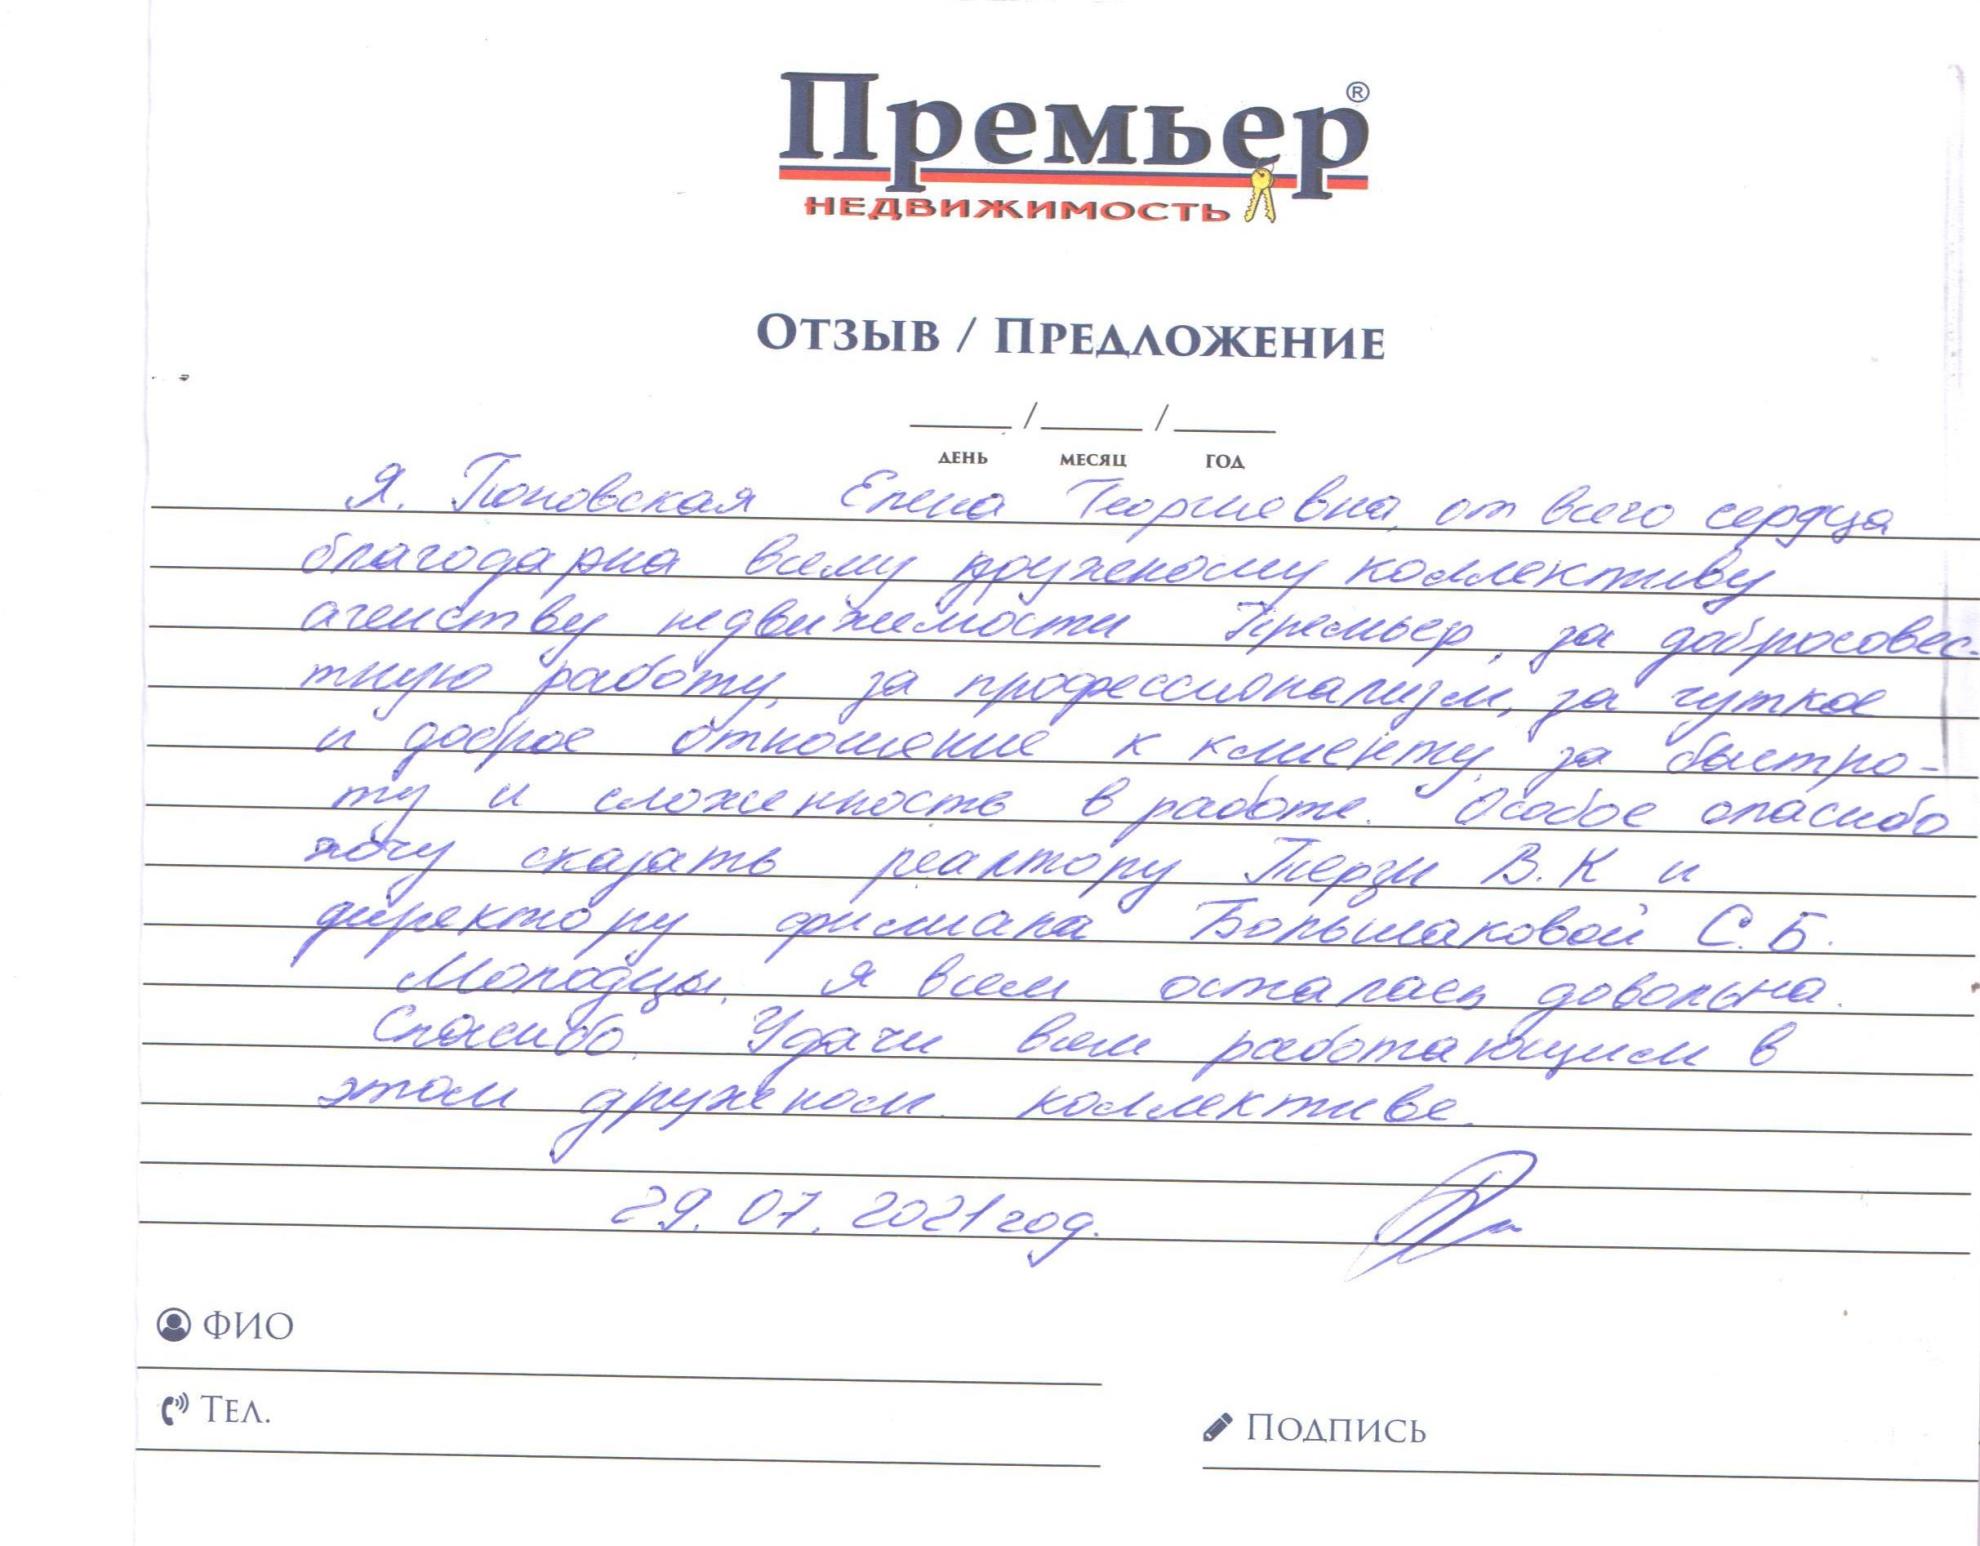 Премьер®
НЕДВИЖИМОСТЬ
Отзыв / Предложение
/ /
день месяц год
Я, Поповская Елена Георгиевна, от всего сердца
благодарна всему друженому коллективу
агенству недвижемости Премьер, за добросовес-
тную работу, за профессионализм, за чуткое
и доброе отношение к клиенту, за быстро-
ту и сложенность в работе. Особое спасибо
хочу сказать реалтору Терзи В.К и
директору филиала Большаковой С.Б.
Молодцы. Я всем осталась довольна.
Спасибо. Удачи всем работающим в
этом друженом коллективе.
29.07.2021 год.
ФИО
Тел.
Подпись